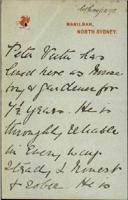 MANILBAH,
NORTH SYDNEY.
Peter Victor has
lived here as House
boy & Gardener for
7½ years. He is
throughly reliable
in every way
Steady & honest
& sober. He is